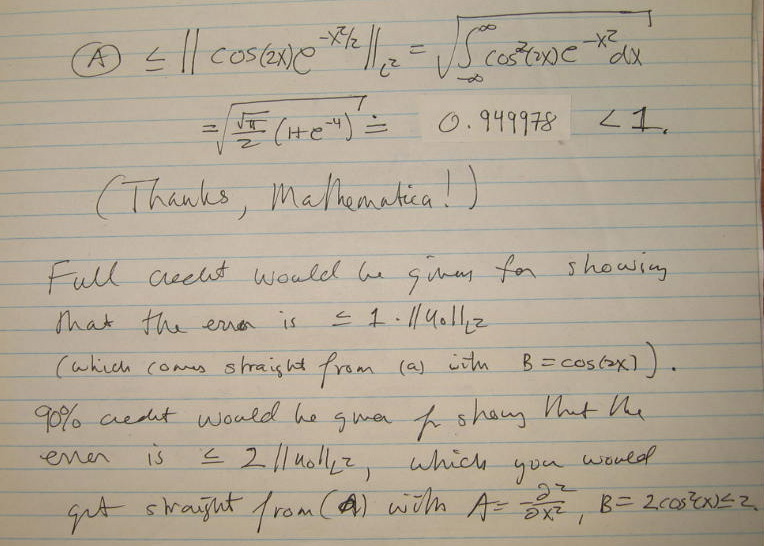 Ⓐ ≤ || cos(2x)e^{-x²/2} ||_{L²} = √(∫_{-∞}^{∞} cos²(2x)e^{-x²}dx)
= √(√π/2 (1+e^{-4})) ≐ 0.949978 < 1.
(Thanks, Mathematica!)
Full credit would be given for showing
that the error is ≤ 1·||u₀||_{L²}
(which comes straight from (a) with B=cos(2x)).
90% credit would be given for showing that the
error is ≤ 2||u₀||_{L²}, which you would
get straight from (A) with A = ∂²/∂x², B = 2cos²(x) ≤ 2.